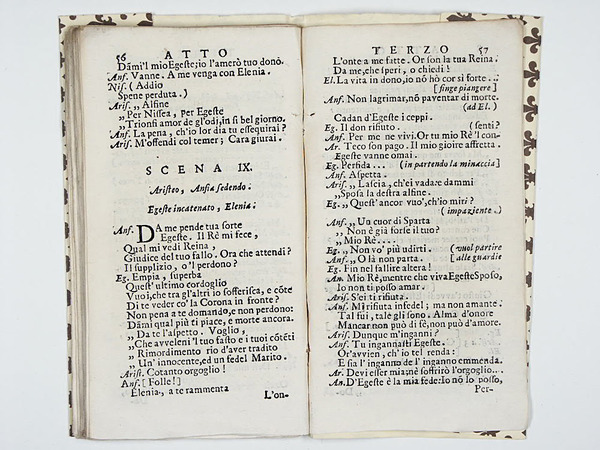 56 ATTO
Dāmi'l mio Egeste; io l'amerò tuo donō.
Anf. Vanne. A me venga con Elenia.
Nis. ( Addio
Spene perduta. )
Aris. „ Alfine
„ Per Nissea, per Egeste
„ Trionfi amor de gl'odi, in sì bel giorno.
Anf. La pena, ch'io lor dia tu essequirai?
Aris. M'offendi col temer; Cara giurai.
SCENA IX.
Aristeo, Anfia sedendo.
Egeste incatenato, Elenia.
Anf. DA me pende tua sorte
Egeste. Il Rè mi fece,
Qual mi vedi Reina,
Giudice del tuo fallo. Ora che attendi?
Il supplizio, o'l perdono?
Eg. Empia, superba
Quest'ultimo cordoglio
Vuoi, che tra gl'altri io sofferisca, e cōte
Di te veder co' la Corona in fronte?
Non pena a te domando, e non perdono:
Dāmi qual più ti piace, e morte ancora.
„ Da te l'aspetto. Voglio,
„ Che avveleni'l tuo fasto e i tuoi cōtēti
„ Rimordimento rio d'aver tradito
„ Un' innocente, ed un fedel Marito.
Arist. Cotanto orgoglio!
Anf. [ Folle! ]
Elenia, a te rammenta
L'on-
TERZO 57
L'onte a me fatte. Or son la tua Reina.
Da me, che speri, o chiedi?
El. La vita in dono, io nō hò cor sì forte...
[ finge piangere ]
Anf. Non lagrimar, nō paventar di morte.
(ad El. )
Cadan d'Egeste i ceppi.
Eg. Il don rifiuto. ( senti?
Anf. Per me ne vivi. Or tu mio Rè 'l con-
Ar. Teco son pago. Il mio gioire affretta.
Egeste vanne omai.
Eg. Perfida... (in partendo la minaccia]
Anf. Aspetta.
Aris. „ Lascia, ch'ei vada: e dammi
„ Sposa la destra alfine.
Eg. „ Quest'ancor vuo', ch'io miri?
( impaziente. )
Anf. „ Un cuor di Sparta
„ Non è già forse il tuo?
„ Mio Rè....
Eg. „ Non vo' più udirti. (vuol partire
Anf. „ O là non parta. [ alle guardie
Eg. Fin nel fallire altera!
An. Mio Rè, mentre che viva Egeste Sposo,
Io non ti posso amar.
Aris. S'ei ti rifiuta.
Anf. Mi rifiuta infedel; ma non amante.
Tal fui, tale gli sono. Alma d'onore
Mancar non può di fè, non può d'amore.
Aris. Dunque m'inganni?
Anf. Tu ingannasti Egeste.
Or'avvien, ch'io tel renda:
E sia l'inganno de l'inganno emmenda.
Ar. Devi esser mia; nè soffrirò l'orgoglio...
An. D'Egeste è la mia fede: Io nō lo posso,
Per-